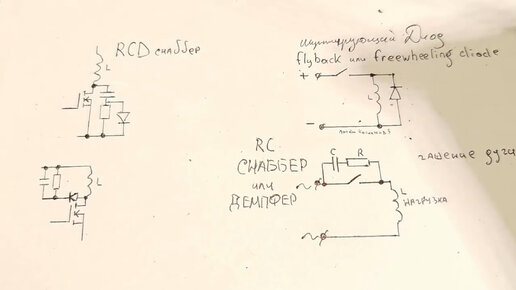 RCD снаббер
шунтирующий Диод
flyback или freewheeling diode
+
L
L
−
RC
СНАББЕР
или
ДЕМПФЕР
гашение дуги
C R
L
~
L
НАГРУЗКА
~